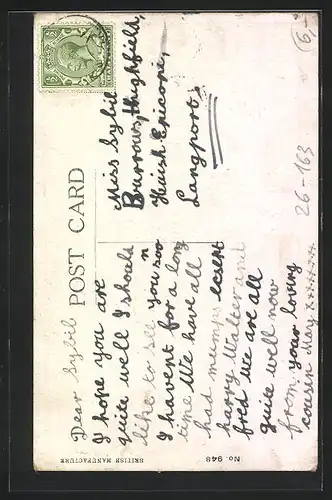 POST CARD
Dear Sybil
I hope you are
quite well I should
like to see you soo
n
I havent for a long
time We have all
had mumps except
harry Walter and
fred We are all
quite well now
from your loving
cousin May xxxxxxx
Miss Sybil
Burrows, Highfield,
Huish Episcopi,
Langport,
26-163
6,-
BRITISH MANUFACTURE
No. 948